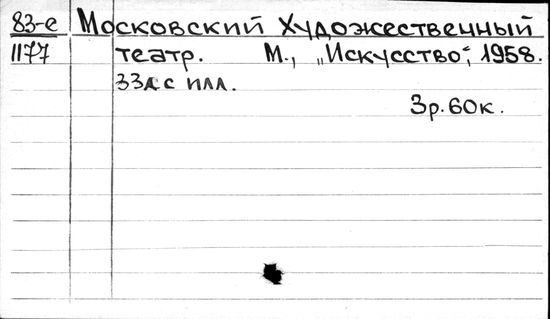 83-е Московский Художественный
1177 театр. М., „Искусство", 1958.
33л с илл.
3р. 60к.